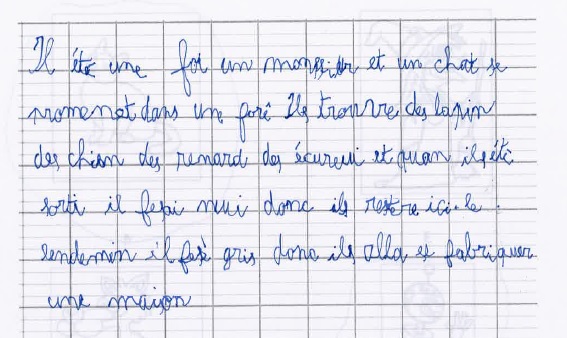 Il éte une foi un monssieur et un chat se
promenet dans une forê Ils trouvre des lapin
des chien des renard des écureui et quan ils été
sorti il fesai nuui donc ils restere ici. le
lendemin il fesè gris donc ils alla et fabriquer
une maison